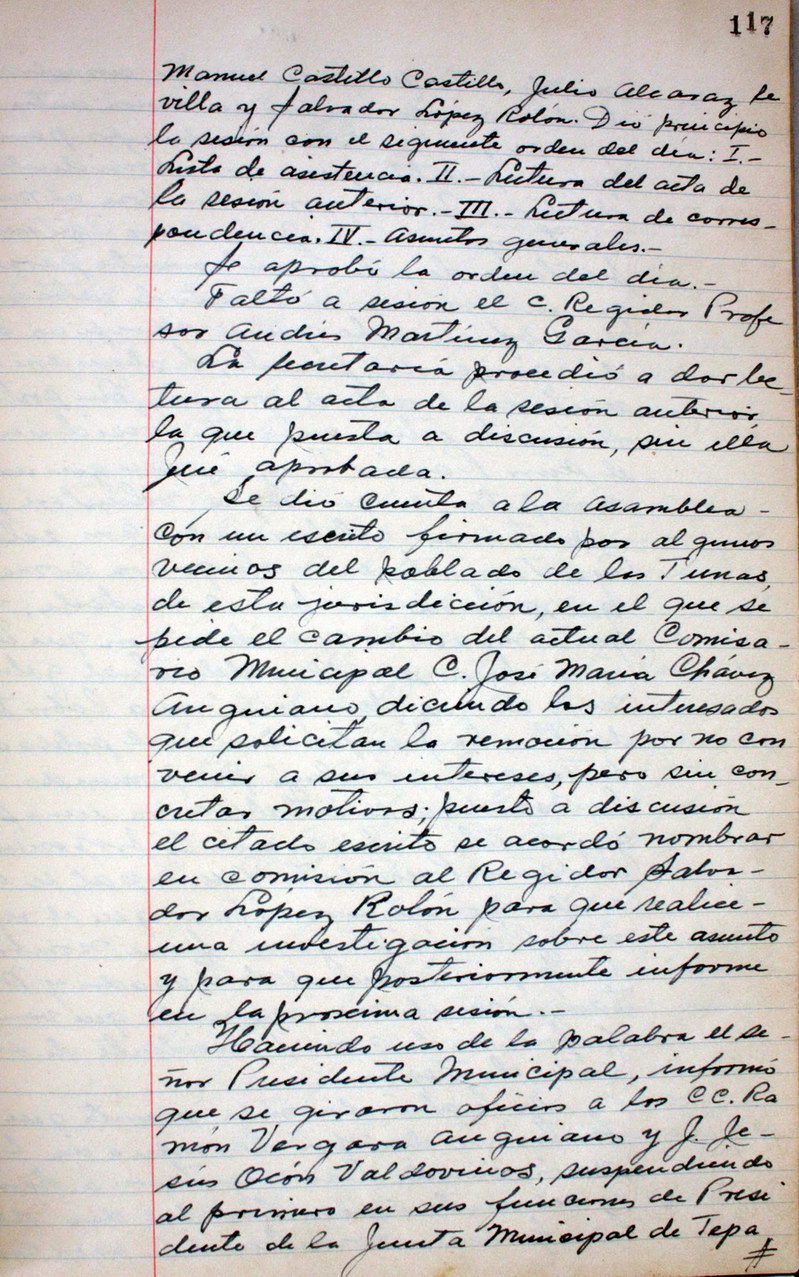 117
Manuel Castillo Castillo, Julio Alcaraz Se
villa y Salvador López Rolón. Dió principio
la sesión con el siguiente orden del día: I.-
Lista de asistencia. II.- Lectura del acta de
la sesión anterior.- III.- Lectura de corres-
pondencia. IV.- Asuntos generales.-
Se aprobó la orden del día.-
Faltó a sesión el C. Regidor Profe
sor Andrés Martínez García.
La Secretaría procedió a dar lec-
tura al acta de la sesión anterior,
la que puesta a discusión, sin ella
fué aprobada.
Se dió cuenta a la Asamblea-
con un escrito firmado por algunos
vecinos del poblado de las Tunas,
de esta jurisdicción, en el que se
pide el cambio del actual Comisa-
rio Municipal C. José María Chávez
Anguiano, diciendo los interesados
que solicitan la remoción por no con
venir a sus intereses, pero sin con-
cretar motivos; puesto a discusión
el citado escrito se acordó nombrar
en comisión al Regidor Salva-
dor López Rolón para que realice-
una investigación sobre este asunto
y para que posteriormente informe
en la proxima sesión.-
Haciendo uso de la palabra el se-
ñor Presidente Municipal, informó
que se giraron oficios a los CC. Ra
món Vergara Anguiano y J. Je-
sús Ocón Valdovinos, suspendiendo
al primero en sus funciones de Presi
dente de la Junta Municipal de Tepa
#